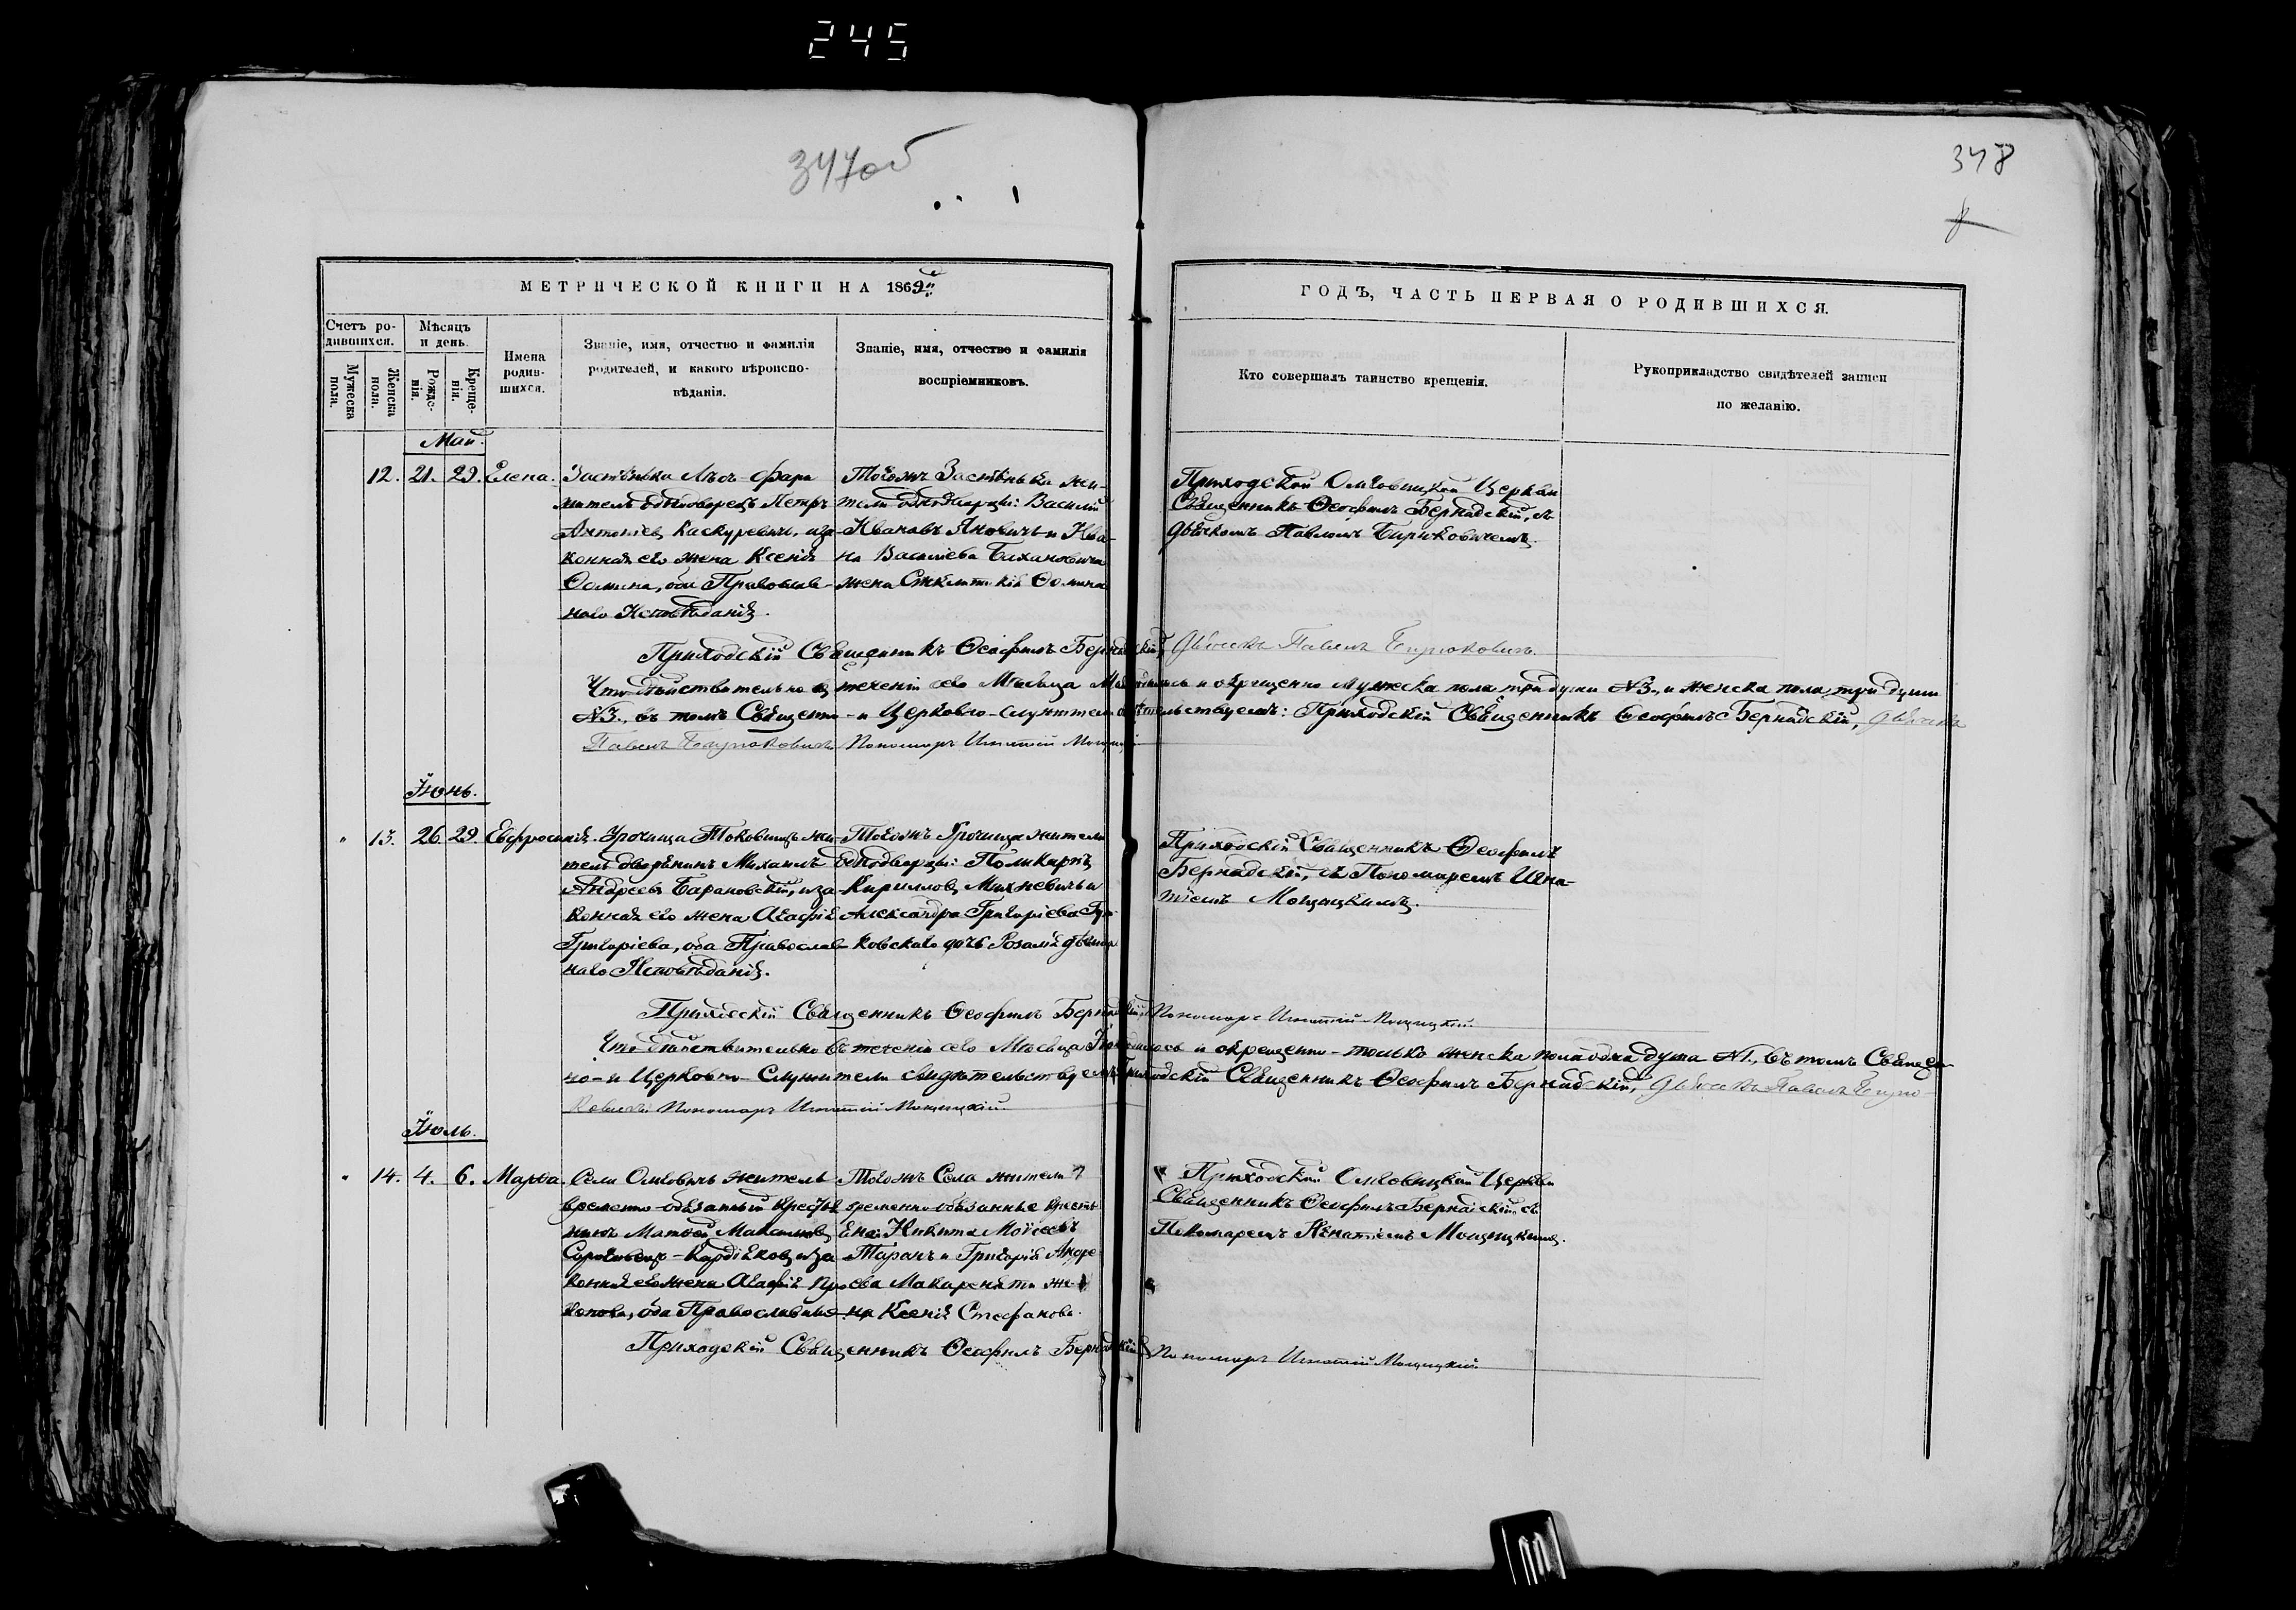 245
347об
348
МЕТРИЧЕСКОЙ КНИГИ НА 1869й
ГОДЪ, ЧАСТЬ ПЕРВАЯ О РОДИВШИХСЯ.
Счетъ ро-
дившихся.
Мужеска
пола.
Женска
пола.
Мѣсяцъ
и день.
Рожде-
нія.
Креще-
нія.
Имена
родив-
шихся.
Званіе, имя, отчество и фамилія
родителей, и какого вѣроиспо-
вѣданія.
Званіе, имя, отчество и фамилія
воспріемниковъ.
Кто совершалъ таинство крещенія.
Рукоприкладство свидѣтелей записи
по желанію.
Май.
12. 21. 29. Елена.
Застѣнка
житель однодворецъ Петръ
Антоніев, за-
конная его жена Ксенія
Ѳомина, оба Православ-
наго Исповѣданія.
Тогожъ Застѣнка жи-
тели однодворцы: Василій
Ивановъ Яновичъ и Ива-
на Василіева Бахановича
жена Ѳомина
Приходской Церкви
Священникъ Ѳеофилъ Бернадскій, съ
дьячкомъ Павломъ Бирюковичемъ.
Приходскій Священникъ Ѳеофилъ Бернадскій, Дьячекъ Павелъ Бирюковичъ.
Что дѣйствительно въ теченіи сего Мѣсяца Мая родилось и окрещенно мужеска пола три души №3., и женска пола три души
№3., въ томъ Священно- и Церковно-служители свидѣтельствуемъ: Приходскій Священникъ Ѳеофилъ Бернадскій, Дьячекъ
Павелъ Бирюковичъ Пономарь Игнатій Мощицкій
Іюнь.
" 13. 26. 29. Евфросинія.
Урочища Токовищъ жи-
тель дворянинъ Михаилъ
Андреевъ Барановскій, и за-
конная его жена Агафія
Григоріева, оба Православ-
наго Исповѣданія.
Тогожъ Урочища жители
Однодворцы: Поликарпъ
Кирилловъ Михневичъ и
Александра Григоріева
дочь Розалія дѣвица
Приходскій Священникъ Ѳеофилъ
Бернадскій, съ Пономаремъ Игна-
тіемъ Мощицкимъ.
Приходскій Священникъ Ѳеофилъ Бернадскій, Пономарь Игнатій Мощицкій.
Что дѣйствительно въ теченіи сего Мѣсяца Іюня родилось и окрещенно - только женска пола одна душа №1., въ томъ Священ-
но- и Церковно-Служители свидѣтельствуемъ: Приходскій Священникъ Ѳеофилъ Бернадскій, Дьячекъ Павелъ Бирю-
ковичъ Пономарь Игнатій Мощицкій.
Іюль.
" 14. 4. 6. Марѳа.
Села житель
временно-обязанный крестья-
нинъ Матѳей Максимовъ
и за-
конная его жена Агафія Про-
копова, оба Православные.
Тогожъ Села жители
временно-обязанные кресть-
яне: Никита Моѵсеевъ
Таранъ и Григорія Андре-
ева жe-
на Ксенія Стефанова.
Приходскій Церкви
Священникъ Ѳеофилъ Бернадскій съ
Пономаремъ Игнатіемъ Мощицкимъ.
Приходскій Священникъ Ѳеофилъ Бернадскій, Пономарь Игнатій Мощицкій.